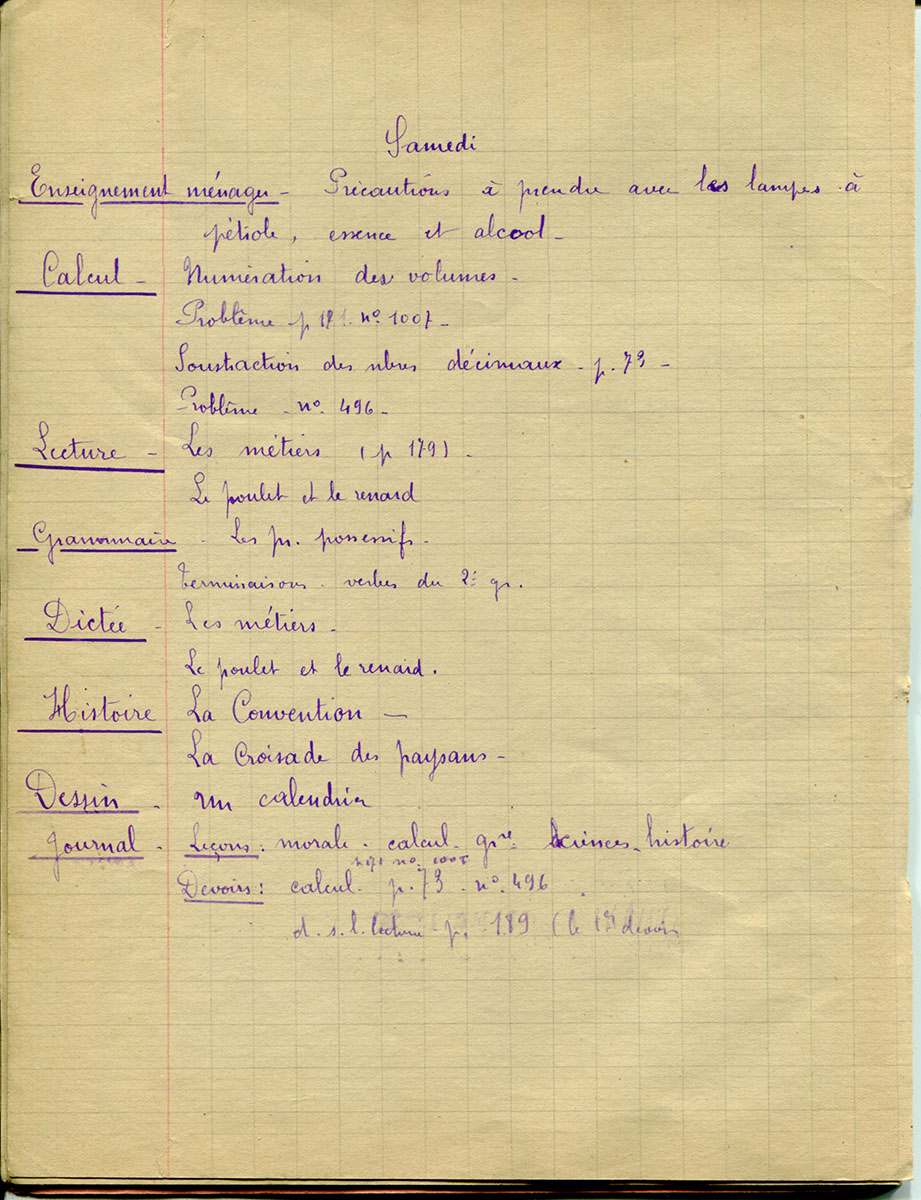 Samedi
Enseignement ménager - Précautions à prendre avec les lampes à
pétrole, essence et alcool -
Calcul - Numération des volumes -
Problème p 181. no 1007 -
Soustraction des nbres décimaux - p. 73 -
Problème - no. 496 -
Lecture - Les métiers ( p 179 ) -
Le poulet et le renard
Grammaire - Les pr. possessifs -
Terminaisons - verbes du 2e gr.
Dictée - Les métiers -
Le poulet et le renard.
Histoire La Convention -
La Croisade des paysans -
Dessin - un calendrier
Journal - Leçons : morale - calcul - gre sciences - histoire
no. 1008
Devoirs : calcul - p. 73 - no. 496
d. s. l. lecture p. 189 ( le 1er devoir